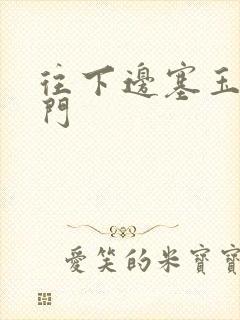 往下邊塞玉
門
愛笑的米寶寶